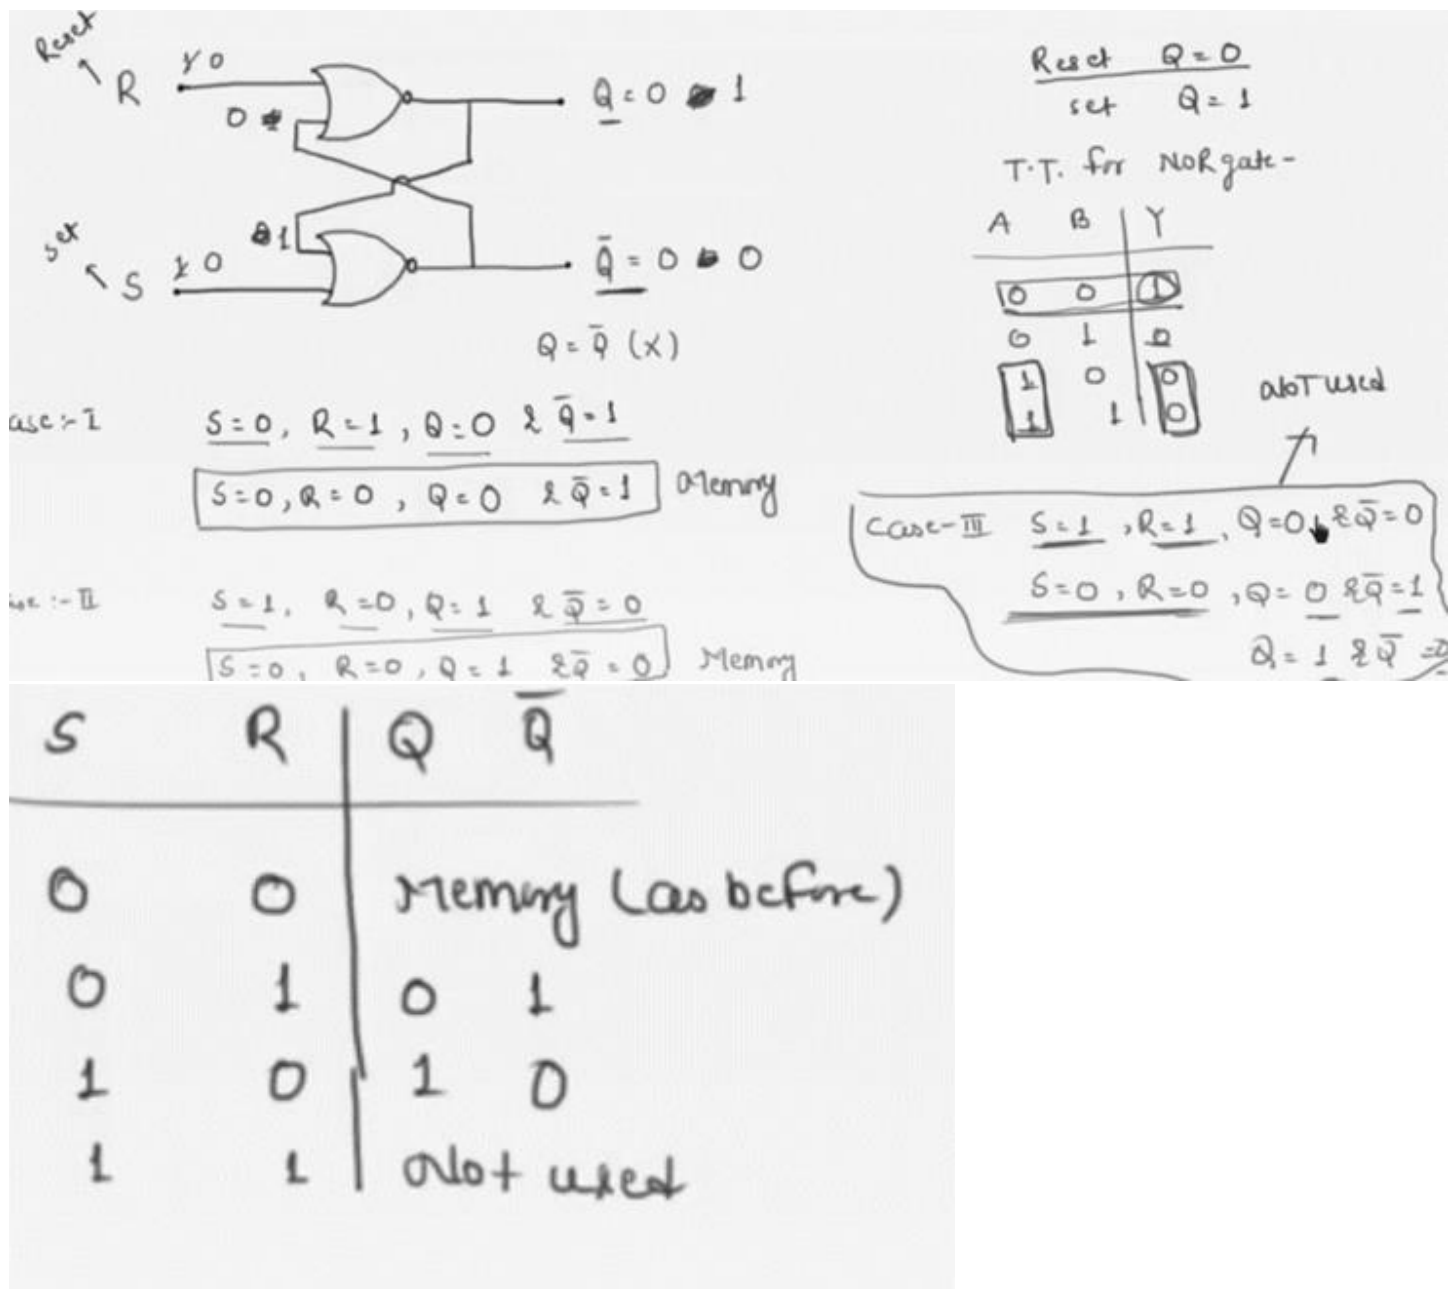 Reset
R
1 0
0 1
Q = 0 1
set
S
1
1 0
Q̄ = 0 0
Q = Q̄ (X)
Reset Q = 0
set Q = 1
T.T. for NOR gate -
A B Y
0 0 1
0 1 0
1 0 0
1 1 0
NOT used
ase :- I S = 0, R = 1, Q = 0 & Q̄ = 1
S = 0, R = 0, Q = 0 & Q̄ = 1 Memory
se :- II S = 1, R = 0, Q = 1 & Q̄ = 0
S = 0, R = 0, Q = 1 & Q̄ = 0 Memory
Case - III S = 1, R = 1, Q = 0 & Q̄ = 0
S = 0, R = 0, Q = 0 & Q̄ = 1
Q = 1 & Q̄ = 0
S R Q Q̄
0 0 Memory (as before)
0 1 0 1
1 0 1 0
1 1 Not used